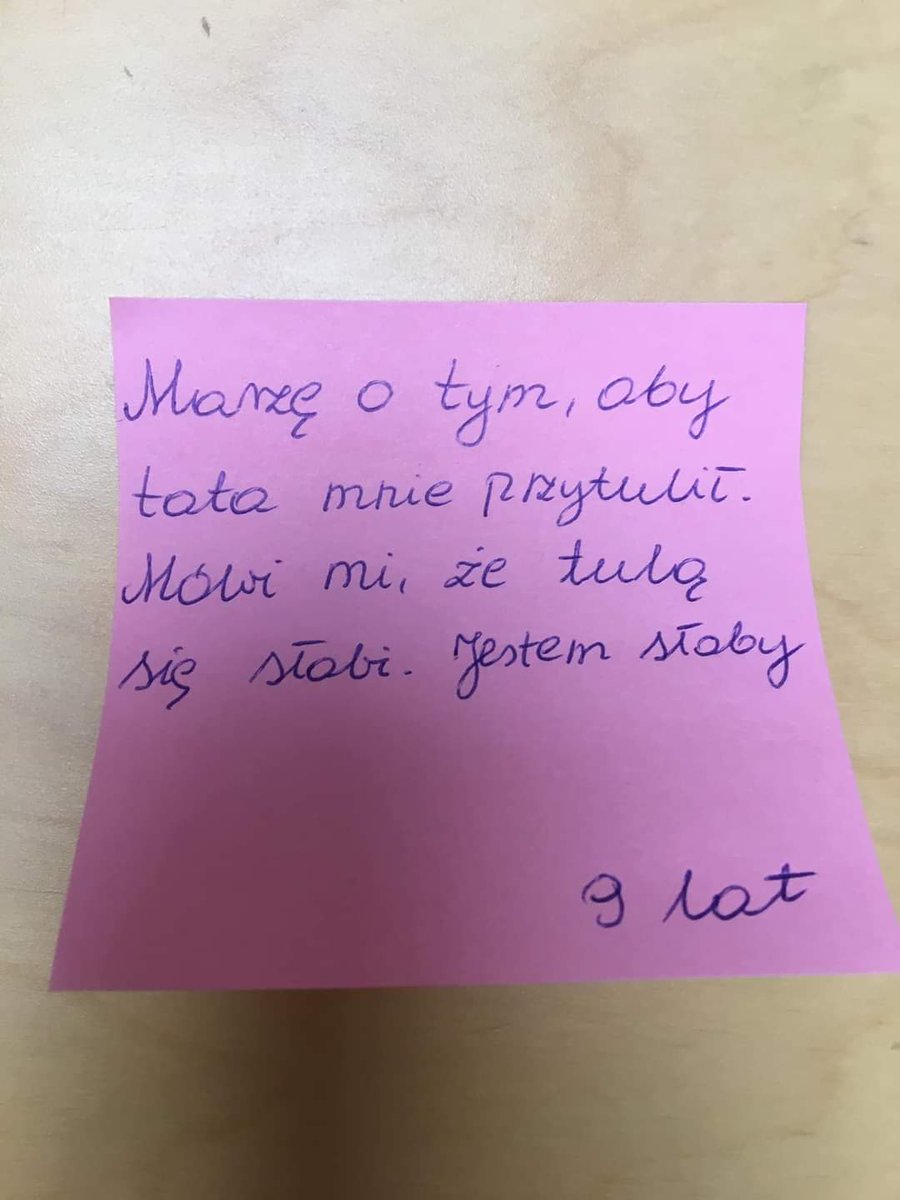 Marzę o tym, aby
tata mnie przytulił.
Mówi mi, że tulą
się słabi. Jestem słaby
9 lat